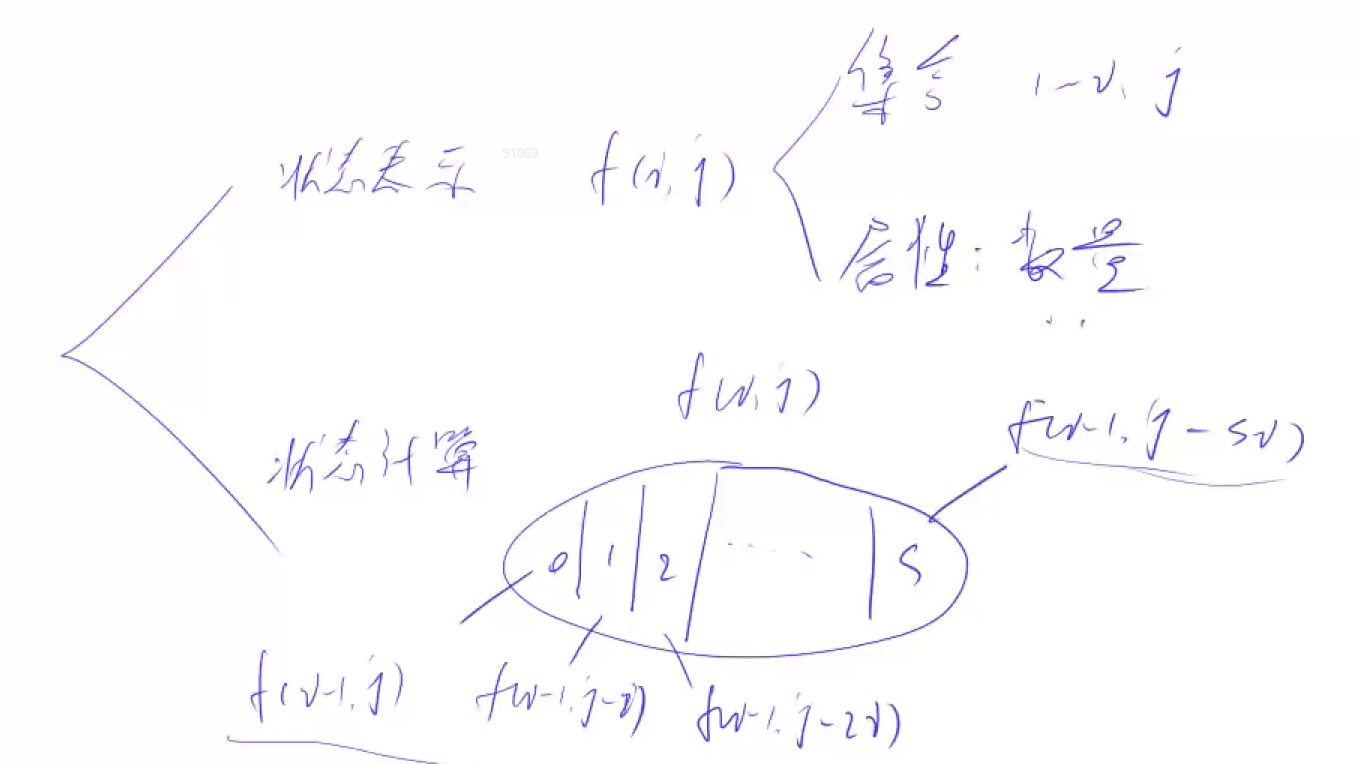 集合 1-i, j
状态表示 f(i, j)
91069
属性: 数量
f(i, j)
f(i-1, j-si)
状态计算
0 1 2 ..... S
f(i-1, j) f(i-1, j-i) f(i-1, j-2i)